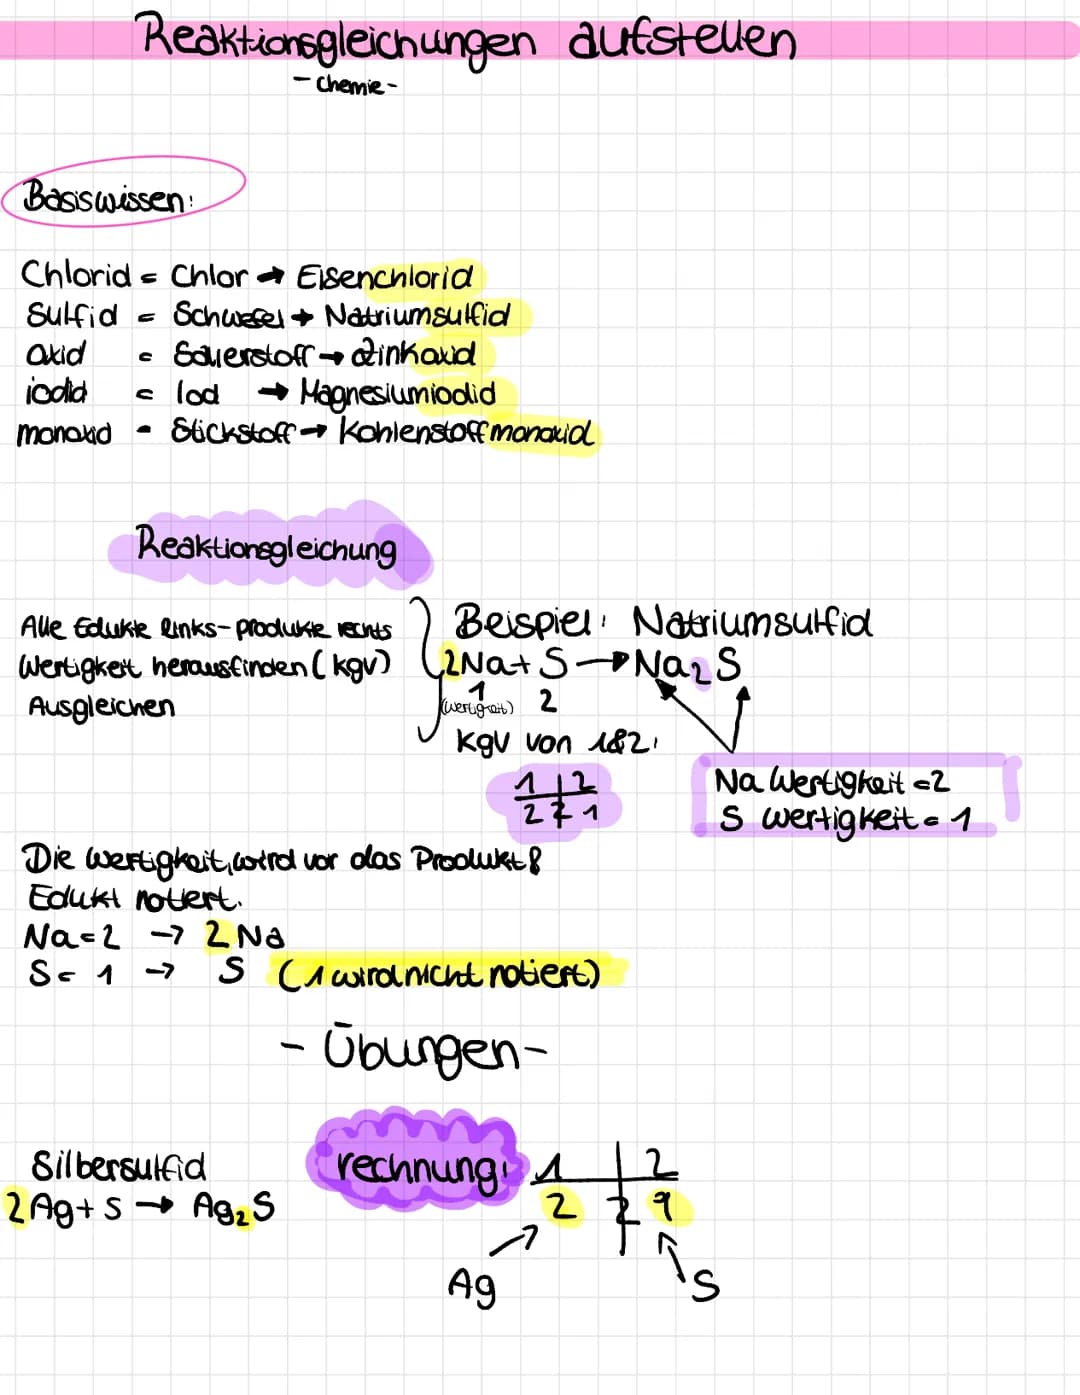 Reaktionsgleichungen aufstellen
- Chemie -
Basiswissen:
Chlorid = Chlor → Eisenchlorid
Sulfid = Schwefel → Natriumsulfid
Oxid = Sauerstoff → Zinkoxid
iodid = Iod → Magnesiumiodid
monoxid - Stickstoff → Kohlenstoffmonoxid
Reaktionsgleichung
Alle Edukte links - produkte rechts
Wertigkeit herausfinden (kgv)
Ausgleichen
Beispiel: Natriumsulfid
2Na + S → Na₂S
1 2
(wertigkeit)
KgV von 1&2:
1 | 2
2 2 1
Na Wertigkeit = 2
S Wertigkeit = 1
Die Wertigkeit, wird vor das Produkt &
Edukt notiert.
Na = 2 → 2 Na
S = 1 → S (1 wird nicht notiert)
- Übungen -
Silbersulfid
2Ag + S → Ag₂S
rechnung:
1 | 2
2 2 1
Ag
S